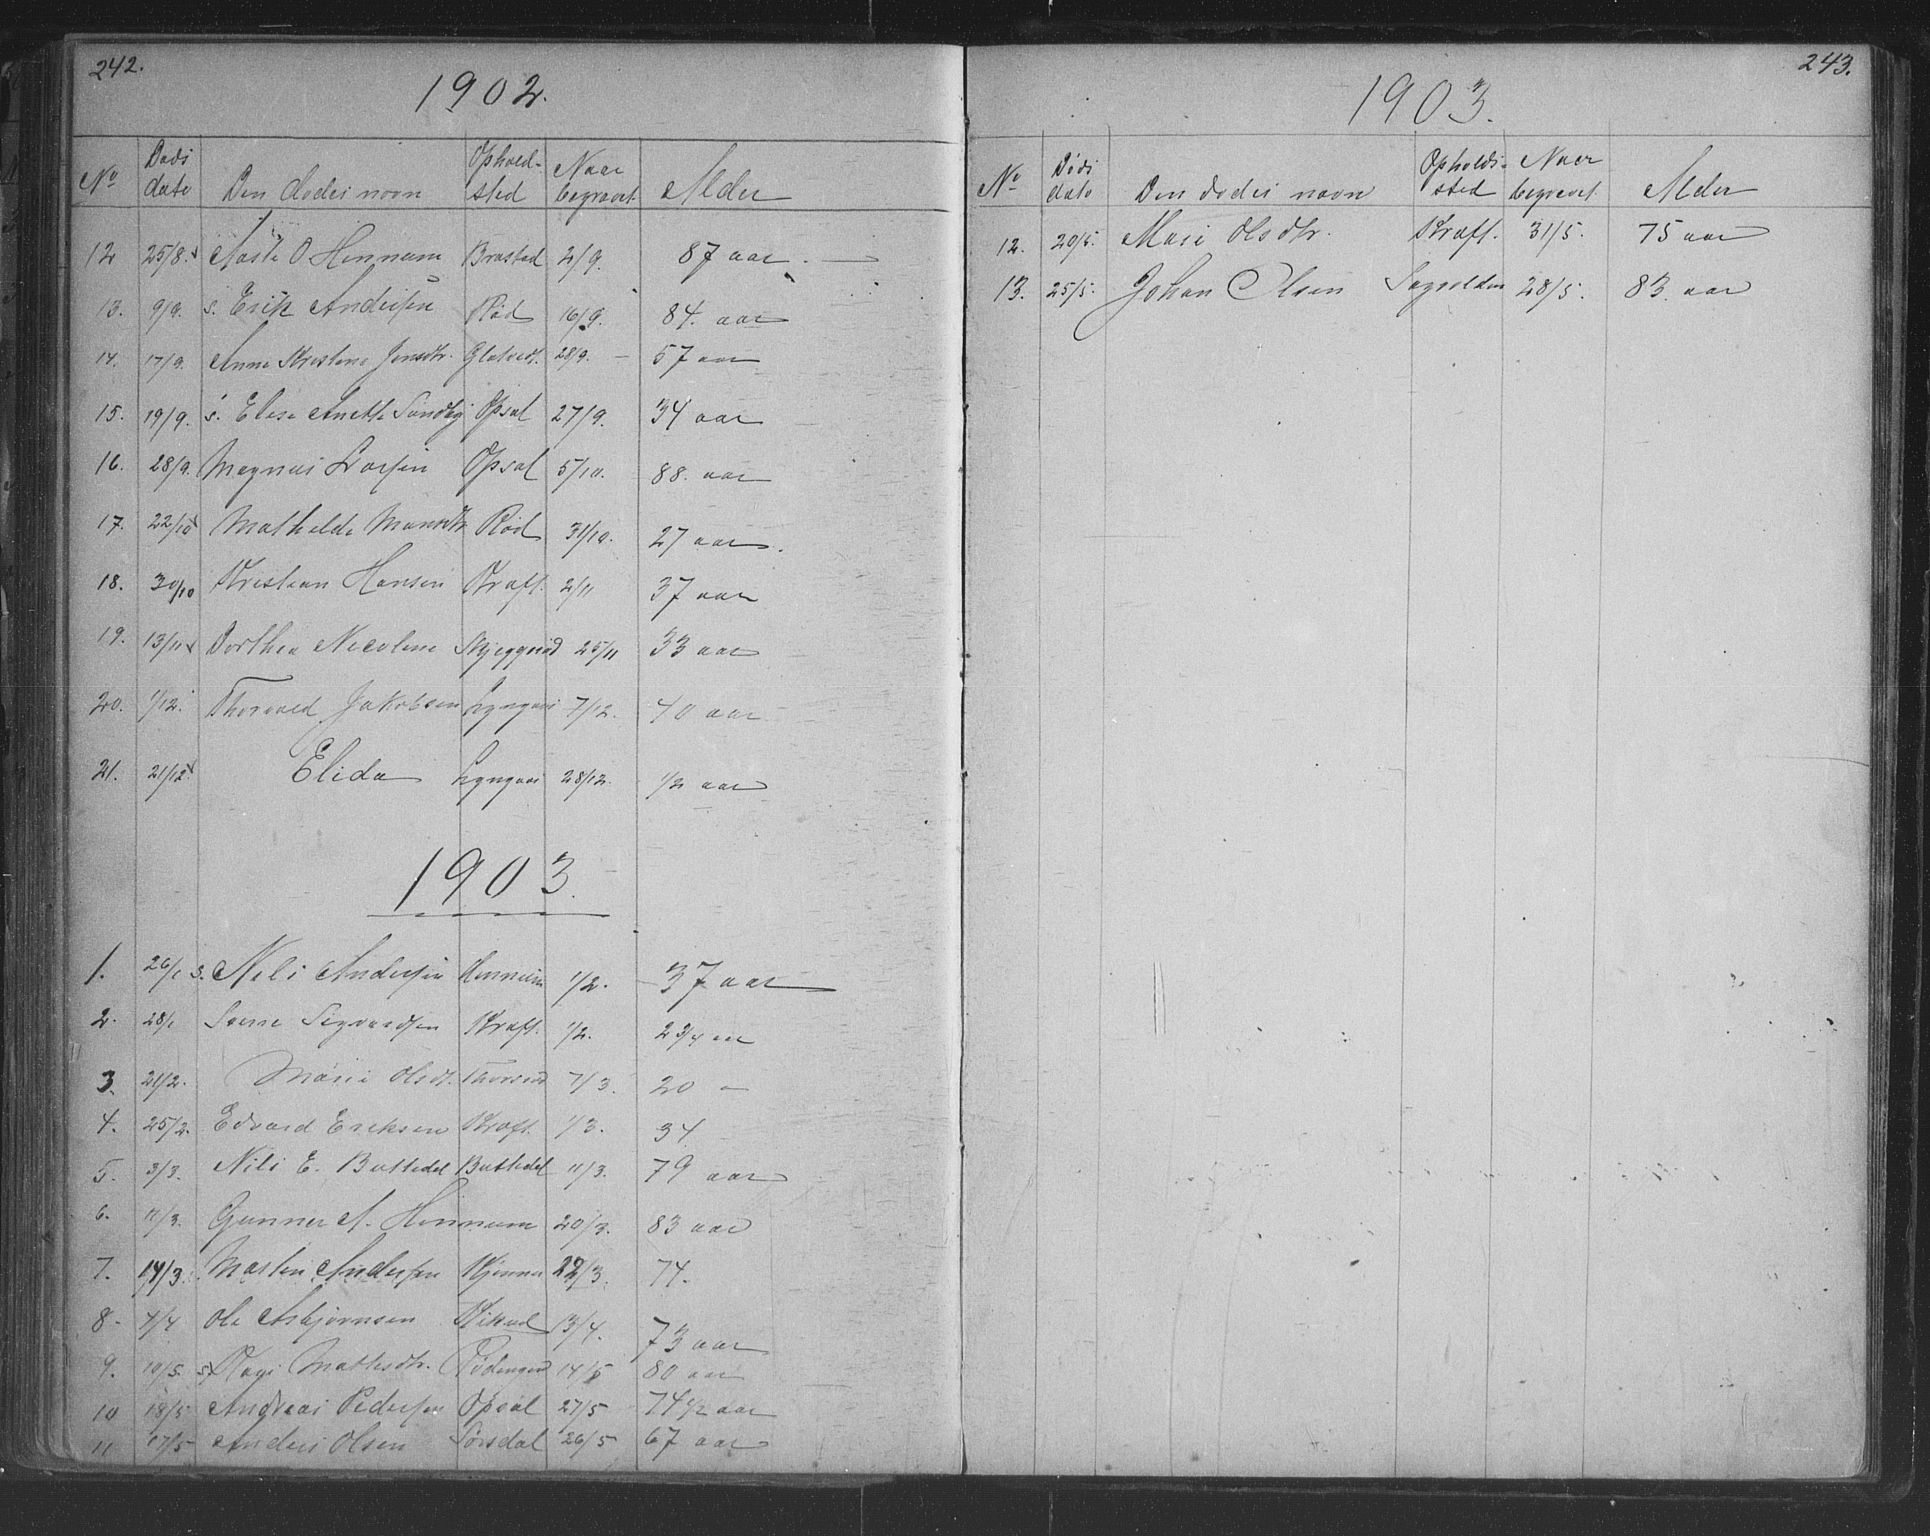 242.
1902.
No Döds dato Den dodes navn Ophold-sted Naar begravet Alder
12 25/8 Aaste O Hennum Brastad 2/9. 87 aar
13. 9/9. s. Erik Andersen Röd 16/9. 84. aar
14. 17/9 Anne Kristine Jensdtr. Glotvedt. 28/9. 57 aar
15. 19/9. s. Elise Anette Sundby Opsal 27/9. 34 aar
16. 28/9. Magnus Larsen Opsal 5/10. 88. aar
17. 22/10 Mathilde Mansdtr. Röd 31/10. 27 aar.
18. 30/10 Kristian Hansen Kraft. 2/11 37 aar
19. 13/11 Dorthea Nicoline Skjeggerød 25/11 33 aar
20. 1/12. Thorvald Jakobsen Lyngaas 7/12. 40 aar
21. 21/12 Elida Lyngaas 28/12. 1/2 aar
1903.
1. 26/1 s. Nils Andersen Hennum 1/2. 37 aar
2. 28/1 Sverre Sigvardsen Kraft. 1/2. 2 3/4 aar
3. 21/2. Marie Olsdt. 7/3. 20 -
4. 25/2. Edvard Eriksen Kraft. 1/3. 34
5. 3/3. Nils E. Battedal Battedal 11/3. 79 aar
6. 11/3. Gunner A. Hennum 20/3. 83 aar
7. 14/3. Martin Andersen 22/3. 74.
8. 4/4 Ole Asbjørnsen 13/4. 73 aar
9. 10/5. s. Mattisdtr. Rödengen 14/5 80 aar
10 18/5 Andreas Pedersen Opsal 27/5 74 1/2 aar
11 17/5 Anders Olsen Sörsdal 26/5 67 aar
243.
1903.
No Döds dato Den dodes navn Opholds-sted Naar begravet Alder
12. 20/5. Mari Olsdtr. Kraft. 31/5. 75 aar
13. 25/5. Johan Olsen 28/5. 83. aar